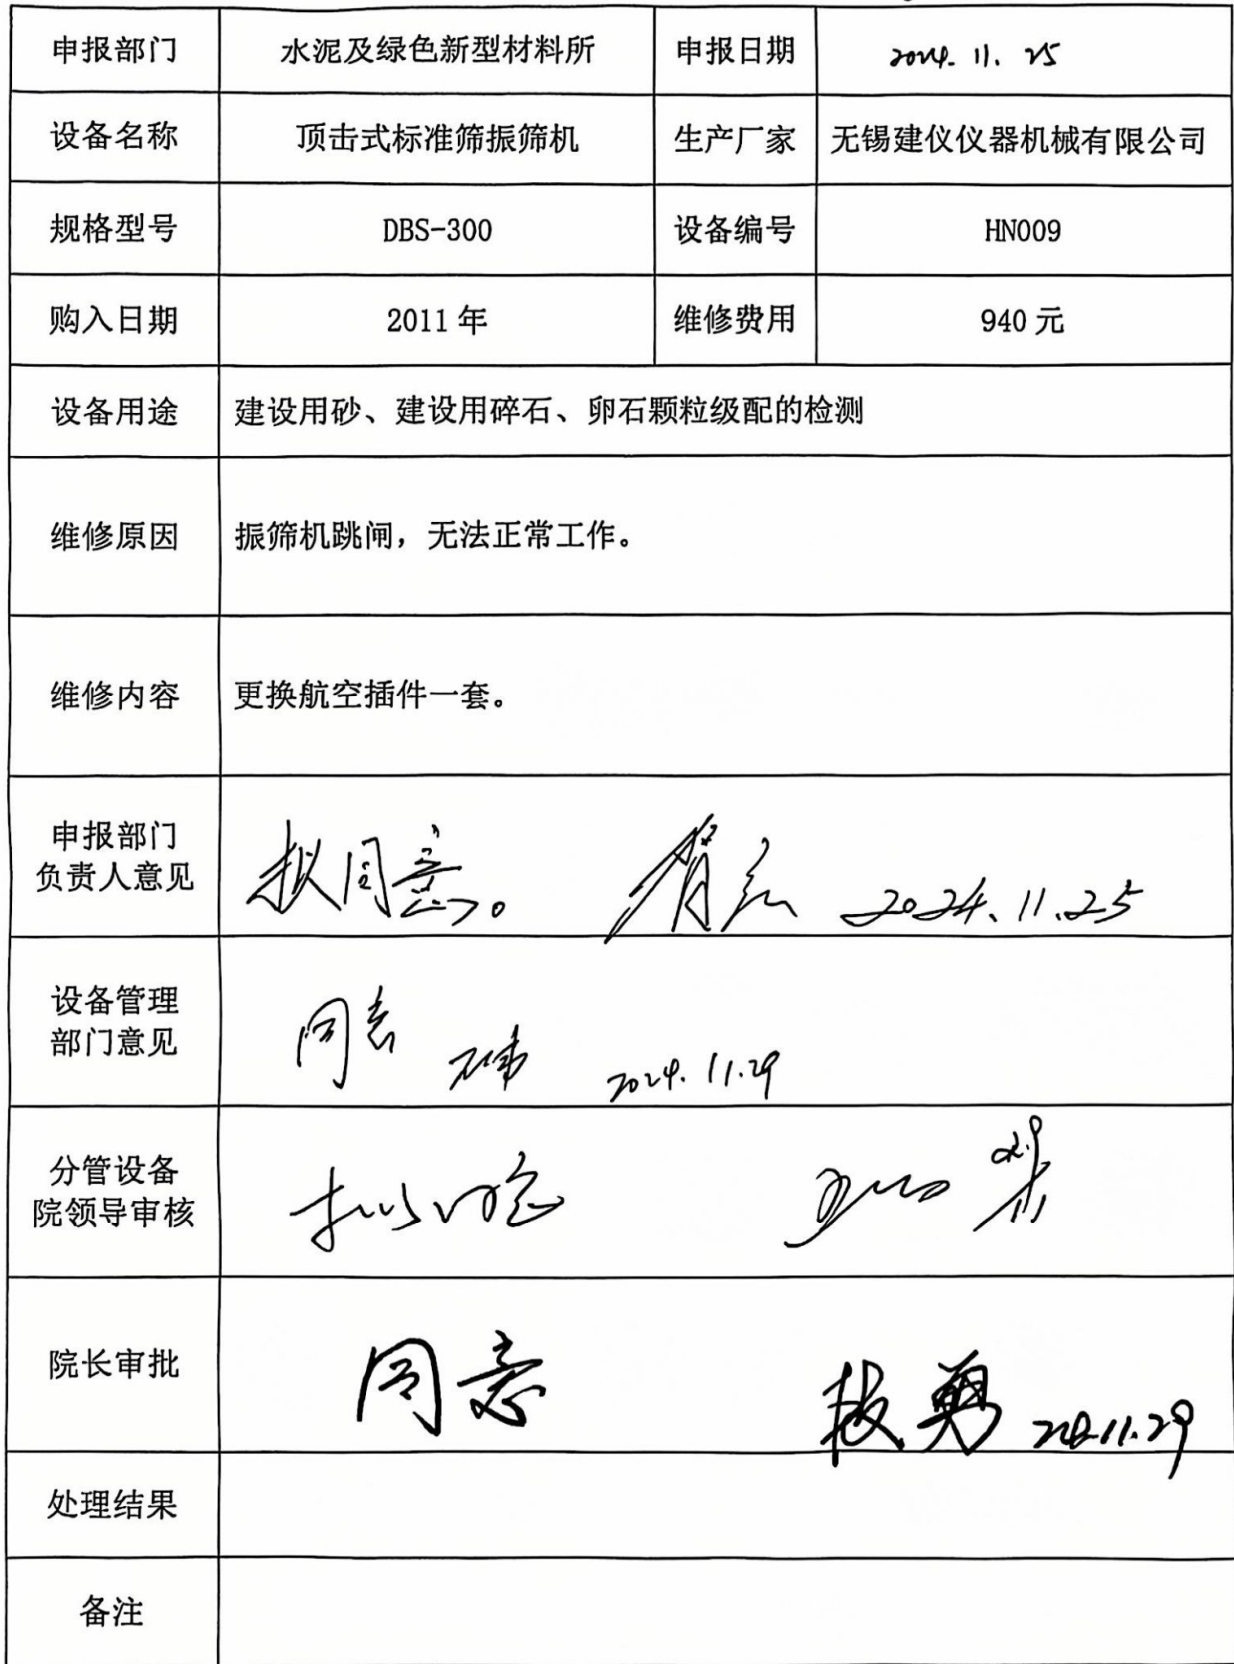 申报部门 水泥及绿色新型材料所 申报日期 2024. 11. 25
设备名称 顶击式标准筛振筛机 生产厂家 无锡建仪仪器机械有限公司
规格型号 DBS-300 设备编号 HN009
购入日期 2011 年 维修费用 940 元
设备用途 建设用砂、建设用碎石、卵石颗粒级配的检测
维修原因 振筛机跳闸，无法正常工作。
维修内容 更换航空插件一套。
申报部门
负责人意见
拟同意。 2024.11.25
设备管理
部门意见
同意 2024.11.29
分管设备
院领导审核
拟同意
院长审批 同意 2024.11.29
处理结果
备注